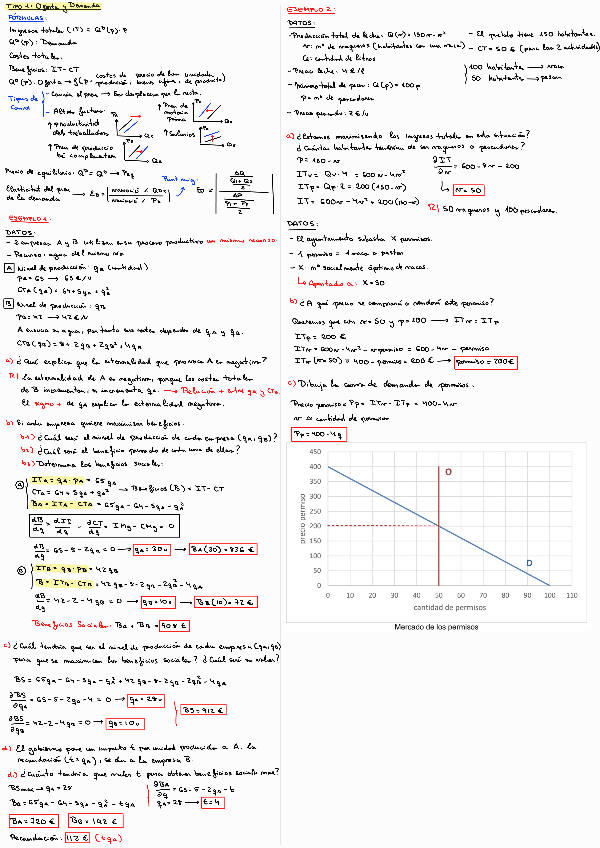 Tipo 1: Oferta y Demanda
FÓRMULAS:
Ingresos totales (IT) = Qᴰ(p)·P
Qᴰ(p): Demanda
Costes totales.
Beneficios: IT-CT
Tipos de
- Cambia el precio → Se desplaza por la recta.
- Alteran factores:
↑ Productividad
del trabajador
↑ Salarios
↑ Precio de producción
bien complementario
Precio de equilibrio: Qᴰ = Qᴼ → P eq
Elasticidad del precio
de la demanda
EJEMPLO 1:
DATOS:
- 2 empresas A y B utilizan en su proceso productivo un mismo recurso.
- Recurso: agua del mismo río
A Nivel de producción: qA (cantidad)
PA = 65 → 65 €/u
CTA (qA) = 64 + 5qA + qA²
B Nivel de producción: qB
PB = 42 → 42 €/u
A ensucia su agua, por tanto sus costes dependen de qA y qB.
CTB (qB) = 8 + 2qB + 2qB² + 4qA
a) ¿Qué explica que la externalidad que provoca A es negativa?
R| La externalidad de A es negativa, porque los costes totales
de B incrementan, si incrementa qA. → Relación + entre qA y CTB.
El signo + de qA explica la externalidad negativa.
b) Si cada empresa quiere maximizar beneficios.
b.1) ¿Cuál será el nivel de producción de cada empresa (qA, qB)?
b.2) ¿Cuál será el beneficio privado de cada una de ellas?
b.3) Determina los beneficios sociales:
A ITA = qA · PA = 65qA
CTA = 64 + 5qA + qA² → Beneficios (B) = IT - CT
BA = ITA - CTA = 65qA - 64 - 5qA - qA²
dB/dq = dIT/dq - dCT/dq = IMg - CMg = 0
dB/dq = 65 - 5 - 2qA = 0 → qA = 30u → BA(30) = 836 €
B ITB = qB · PB = 42qB
B = ITB - CTB = 42qB - 8 - 2qB - 2qB² - 4qA
dB/dq = 42 - 2 - 4qB = 0 → qB = 10u → BB(10) = 72 €
Beneficios Sociales: BA + BB = 908 €
c) ¿Cuál tendría que ser el nivel de producción de cada empresa (qA, qB)
para que se maximicen los beneficios sociales? ¿Cuál será su valor?
BS = 65qA - 64 - 5qA - qA² + 42qB - 8 - 2qB - 2qB² - 4qA
∂BS/∂qA = 65 - 5 - 2qA - 4 = 0 → qA = 28u
BS = 912 €
∂BS/∂qB = 42 - 2 - 4qB = 0 → qB = 10u
d) El gobierno pone un impuesto t por unidad producida a A. La
recaudación (t × qA), se da a la empresa B.
d.1) ¿Cuánto tendría que valer t para obtener beneficios sociales max?
BS max → qA = 28
BA = 65qA - 64 - 5qA - qA² - tqA
∂BA/∂q = 65 - 5 - 2qA - t
qA = 28 → t = 4
BA = 720 € BB = 192 €
Recaudación: 112 € (tqA)
EJEMPLO 2:
DATOS:
- Producción total de leche: Q(n) = 150n - n²
nº de vaqueros (habitantes con una vaca)
Q: cantidad de litros
- El pueblo tiene 150 habitantes.
- CT = 50 € (para las 2 actividades)
- Precio leche: 4 €/l
100 habitante → vaca
50 habitante → pescar
- Número total de peces: Q(p) = 100p
p = nº de pescadores
- Precio pescado: 2 €/u
a) ¿Estamos maximizando los ingresos totales en esta situación?
¿Cuántos habitantes tendrían de ser vaqueros o pescadores?
P = 150 - n
ITv = Qv · 4 = 600n - 4n²
ITp = Qp · 2 = 200 (150 - n)
IT = 600n - 4n² + 200 (150 - n)
∂IT/∂n = 600 - 8n - 200
n = 50
R| 50 vaqueros y 100 pescadores.
DATOS:
- El ayuntamiento subasta X permisos.
- 1 permiso = 1 vaca a pastar
- X: nº socialmente óptimo de vacas.
↳ Apartado a: X = 50
b) ¿A qué precio se comprará o venderá este permiso?
Queremos que con n = 50 y p = 100 → ITv = ITp
ITp = 200 €
ITv (n=50) = 400 - permiso = 200 € → permiso = 200 €
c) Dibuja la curva de demanda de permisos.
Precio permiso: Pp = ITv - ITp = 400 - 4n
n = cantidad de permisos
Pp = 400 - 4q
450
400
350
300
250
200
150
100
50
0
precio permiso
O
D
0 10 20 30 40 50 60 70 80 90 100 110
cantidad de permisos
Mercado de los permisos